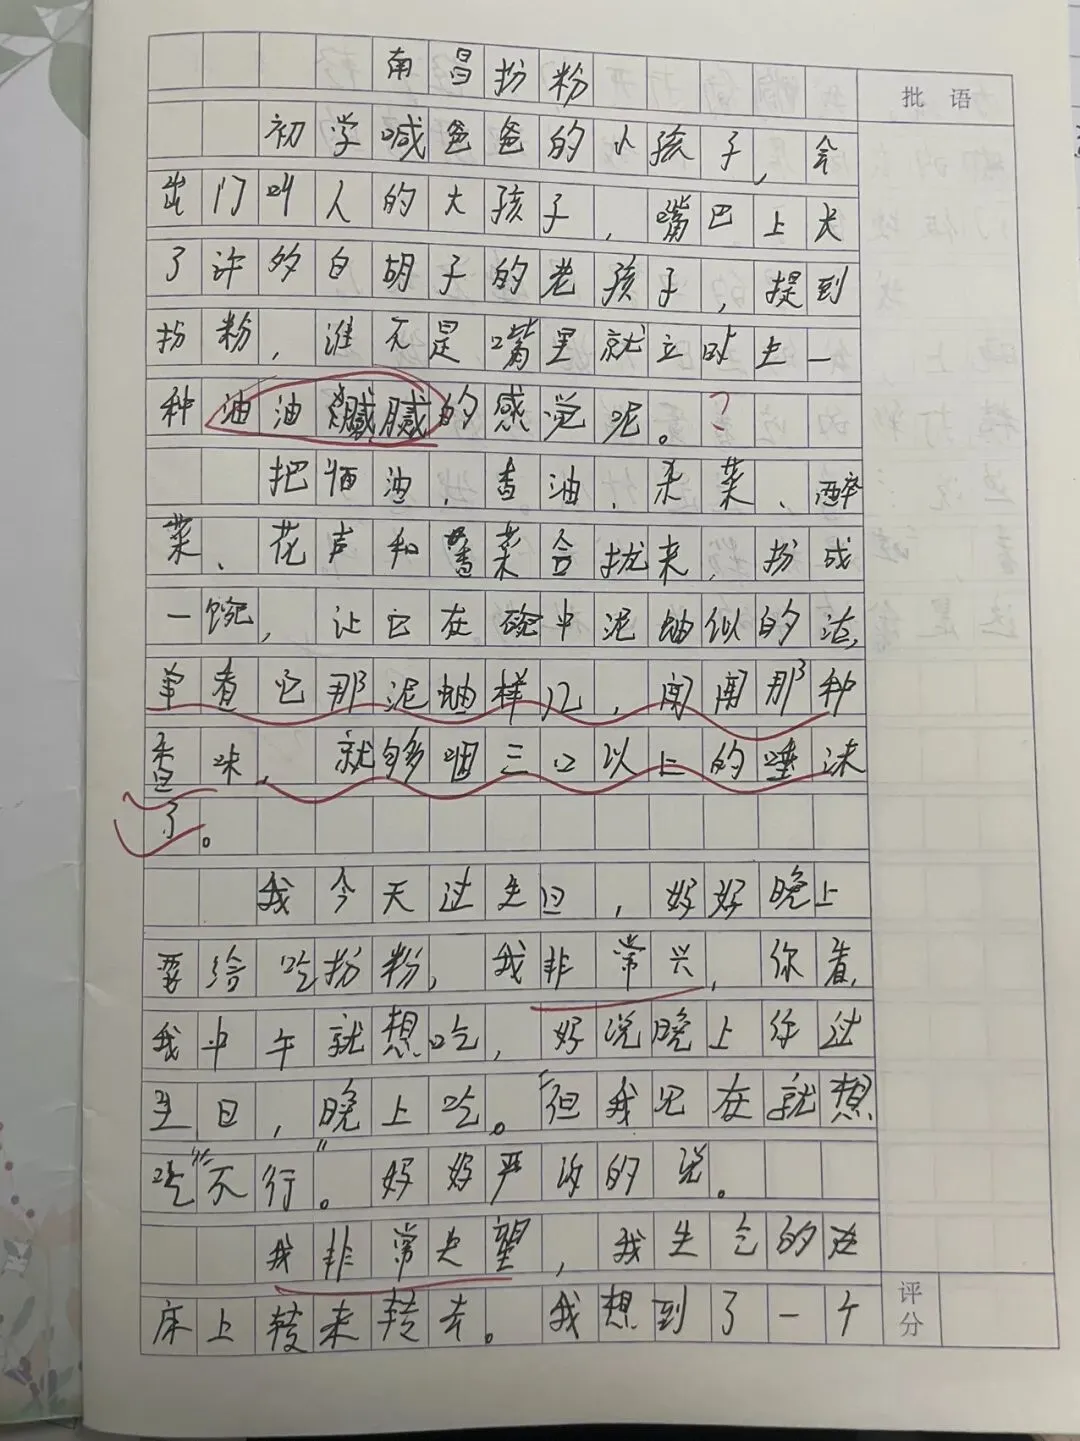 南昌扮粉
批语
初学喊爸爸的小孩子，会
出门叫人的大孩子，嘴巴上长
了许多白胡子的老孩子，提到
扮粉，谁不是嘴里就立时生一
种油油腻腻的感觉呢。?
把酒油，香油，杀菜、醉
菜、花声和蕃菜合扰来，扮成
一碗，让它在碗中泥蚰似的法，
单看它那泥蚰样儿，闻闻那种
香味，就够咽三口以上的唾沫
了。
我今天过生日，好好晚上
要给吃扮粉，我非常兴，你看，
我中午就想吃，好说晚上你过
生日，晚上吃。"但我见在就想
吃""不行"。好好严改的说。
我非常失望，我生乞的在
床上转来转去。我想到了一个
评分